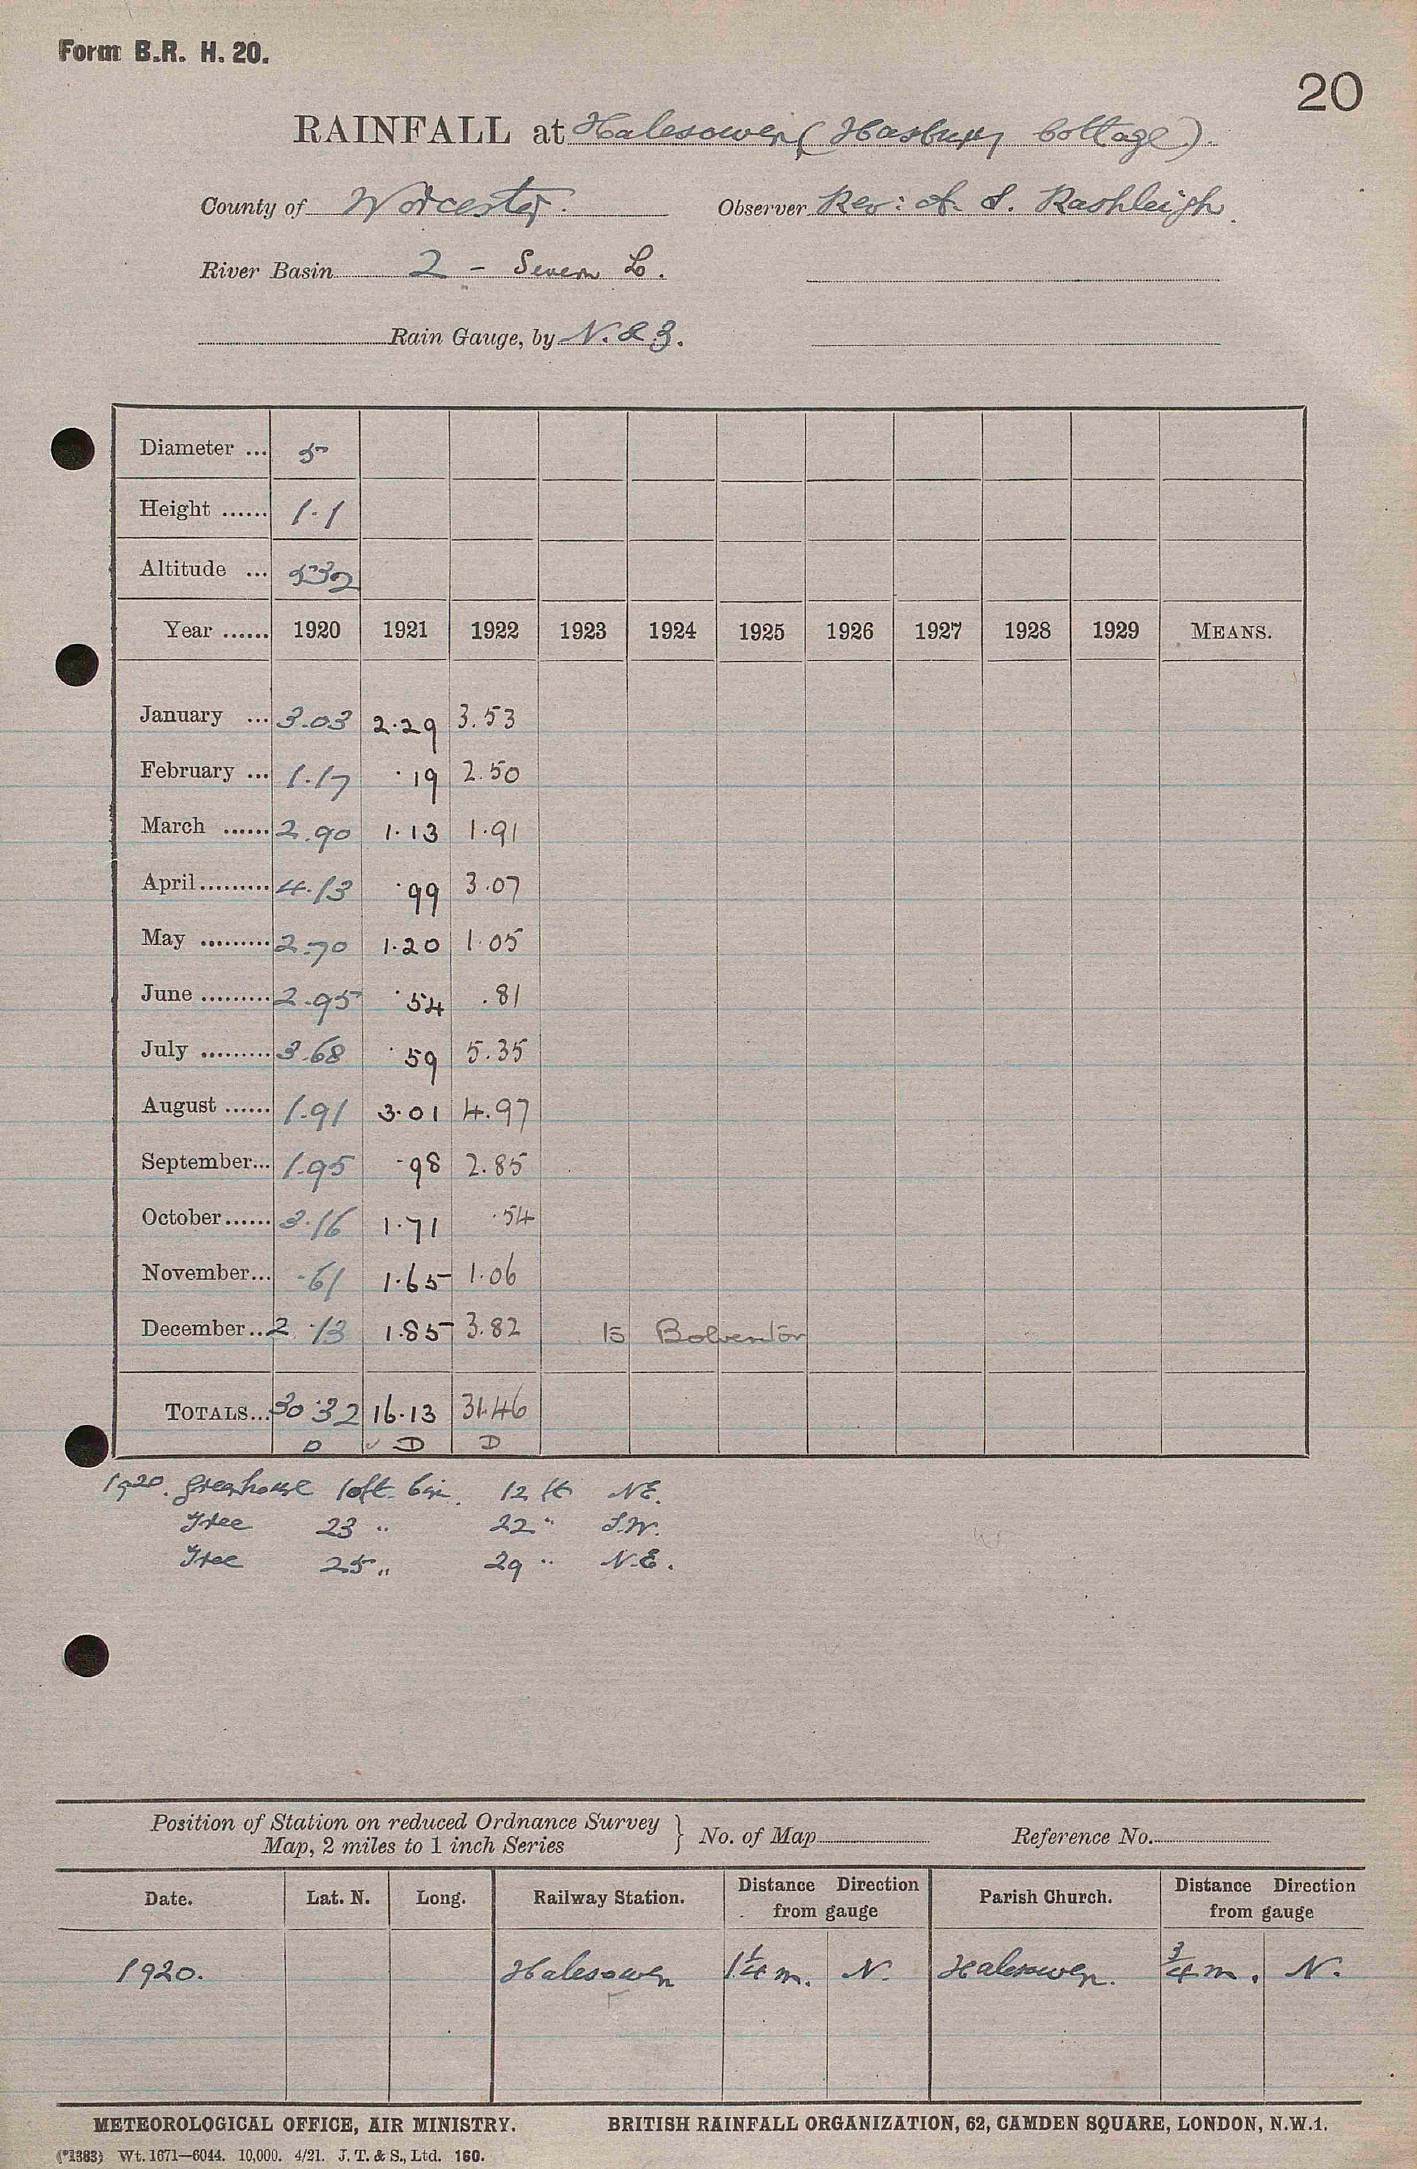 Form B.R. H. 20.
20
RAINFALL at Halesowen (Hasbury Cottage).
County of Worcester. Observer Rev: A. S. Rashleigh
River Basin 2 - Severn L.
Rain Gauge, by N. & Z.
Diameter ... 5
Height ...... 1.1
Altitude ... 532
Year ...... 1920 1921 1922 1923 1924 1925 1926 1927 1928 1929 MEANS.
January ... 3.03 2.29 3.53
February ... 1.17 .19 2.50
March ...... 2.90 1.13 1.91
April ......... 4.13 .99 3.07
May ......... 2.70 1.20 1.05
June ......... 2.95 .54 .81
July ......... 3.68 .59 5.35
August ...... 1.91 3.01 4.97
September... 1.95 .98 2.85
October ...... 3.16 1.71 .54
November... .61 1.65 1.06
December... 2.13 1.85 3.82 15 Bolventor
TOTALS... 30.32 16.13 31.46
D D D
1920. Greenhouse 10ft. 6in. 12 ft NE.
Tree 23 " 22 " S.W.
Tree 25 " 29 " N.E.
Position of Station on reduced Ordnance Survey
Map, 2 miles to 1 inch Series } No. of Map Reference No.
Date. Lat. N. Long. Railway Station. Distance Direction from gauge Parish Church. Distance Direction from gauge
1920. Halesowen 1¼ m. N. Halesowen. ¾ m. N.
METEOROLOGICAL OFFICE, AIR MINISTRY. BRITISH RAINFALL ORGANIZATION, 62, CAMDEN SQUARE, LONDON, N.W.1.
(*1383) Wt. 1671—6044. 10,000. 4/21. J. T. & S., Ltd. 160.